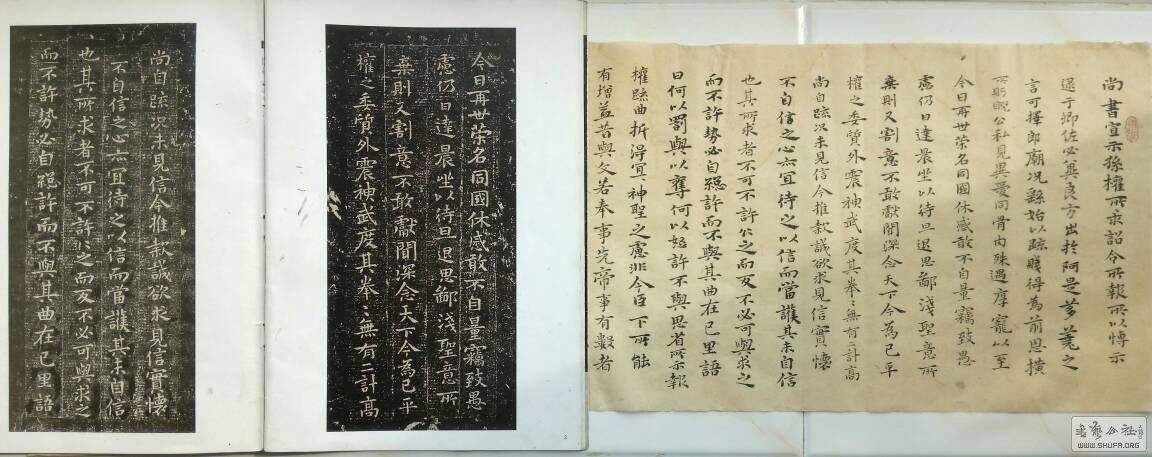 尚書宣示孫權所求詔令所報所以博示
逮于卿佐必冀良方出於阿是芻蕘之
言可擇郎廟況繇始以疏賤得為前恩橫
所眄睨公私見異愛同骨肉殊遇厚寵以至
今日再世榮名同國休慼敢不自量竊致愚
慮仍日達晨坐以待旦退思鄙淺聖意所
棄則又割意不敢獻聞深念天下今為已平
權之委質外震神武度其拳〻無有二計高
尚自疏況未見信今推款誠欲求見信實懷
不自信之心亦宜待之以信而當護其未自信
也其所求者不可不許許之而反不必可與求之
而不許勢必自絕許而不與其曲在己里語
曰何以罰與以奪何以怒許不與思省所示報
權疏曲折得宜神聖之慮非今臣下所能
有增益昔與文若奉事先帝事有數者
今日再世榮名同國休慼敢不自量竊致愚
慮仍日達晨坐以待旦退思鄙淺聖意所
棄則又割意不敢獻聞深念天下今為已平
權之委質外震神武度其拳〻無有二計高
尚自疏況未見信今推款誠欲求見信實懷
不自信之心亦宜待之以信而當護其未自信
也其所求者不可不許許之而反不必可與求之
而不許勢必自絕許而不與其曲在己里語
書藝公社
WWW.SHUFA.ORG